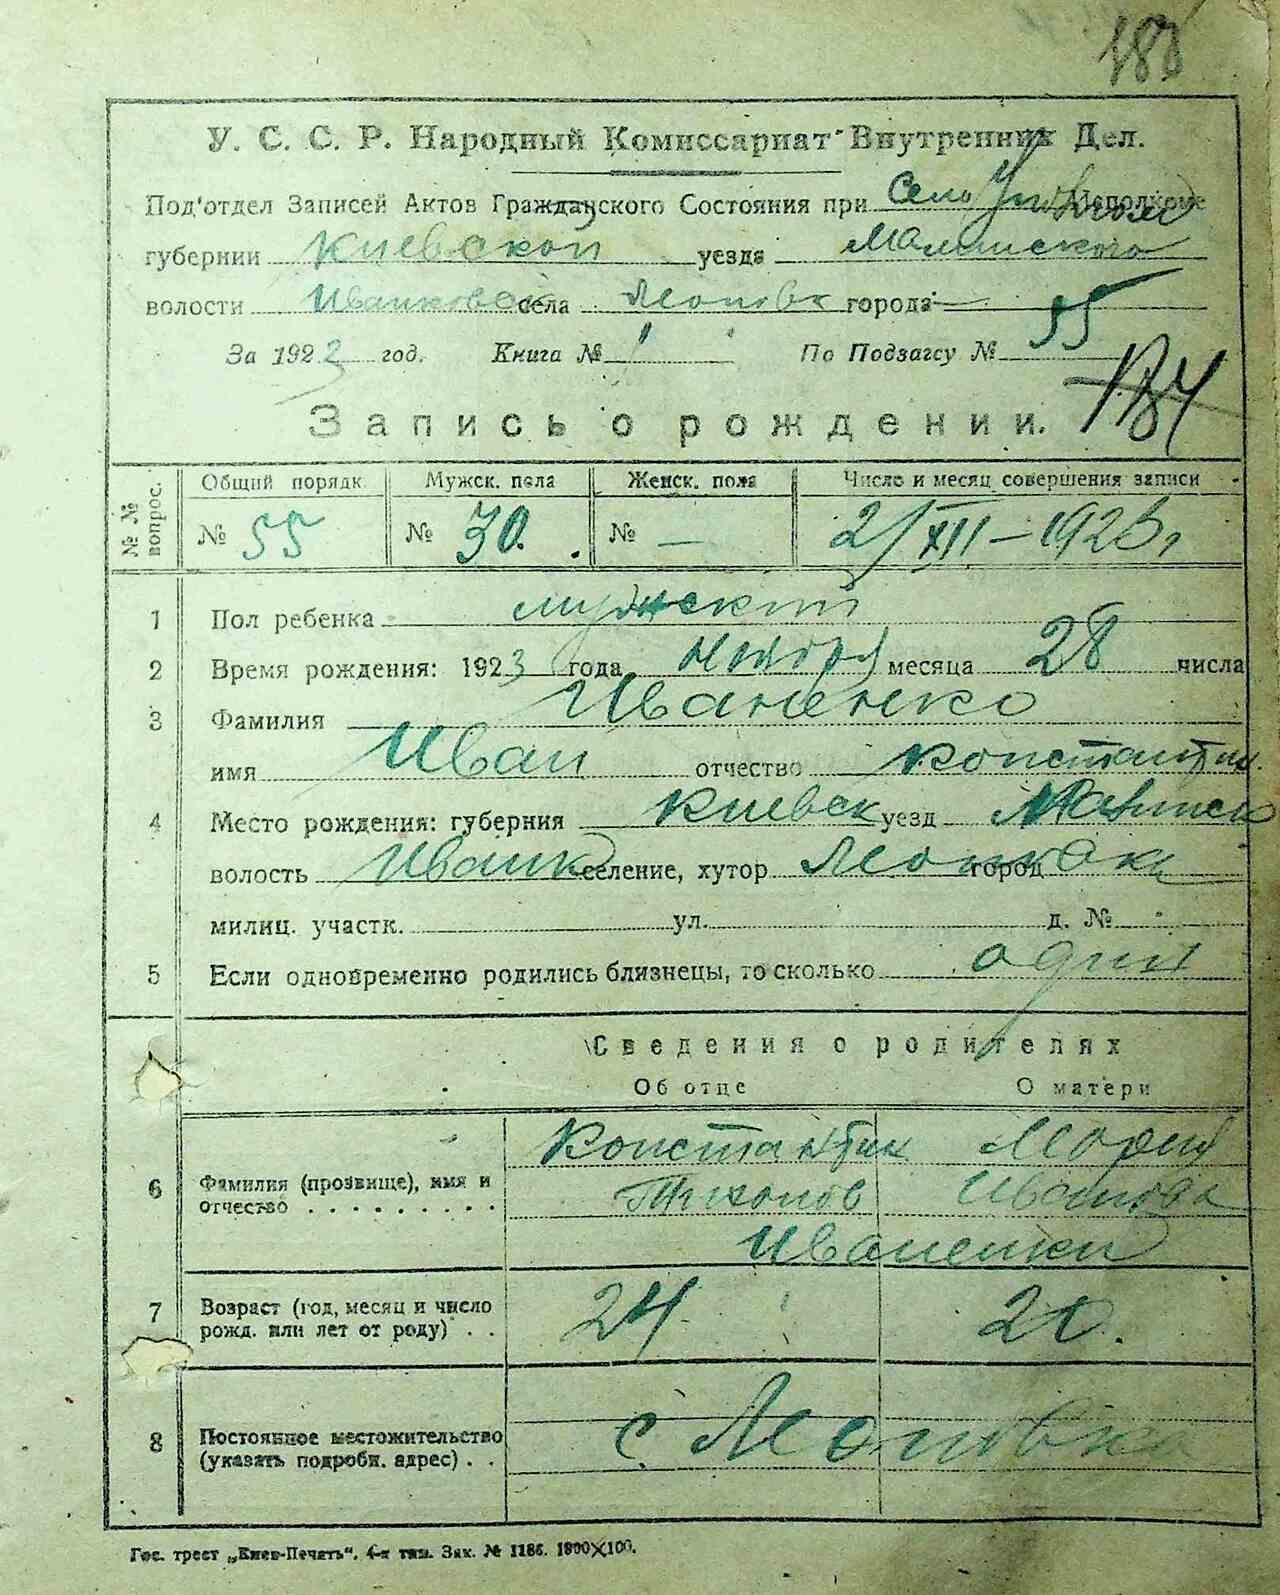 183
У. С. С. Р. Народный Комиссариат Внутренних Дел.
Под'отдел Записей Актов Гражданского Состояния при Село Исполкоме
губернии Киевской уезда Малинского
волости Иванковск села Леоновк города —
За 1923 год. Книга № 1 По Подзагсу № 55
184
Запись о рождении.
№ № вопрос. Общий порядк. Мужск. пола Женск. пола Число и месяц совершения записи
№ 55 № 30. № — 2/XII – 1923 г,
1 Пол ребенка мужский
2 Время рождения: 1923 года ноября месяца 28 числа
3 Фамилия Иваненко
имя Иван отчество Константин.
4 Место рождения: губерния Киевск уезд Малинск
волость Иванк селение, хутор город
милиц. участк. ул. д. №
5 Если одновременно родились близнецы, то сколько один
Сведения о родителях
Об отце О матери
Константин Мария
6 Фамилия (прозвище), имя и отчество . . . . . . . . . . Тихонов Иванова
Иваненки
7 Возраст (год, месяц и число рожд. или лет от роду) . . 24 20.
8 Постоянное местожительство (указать подробн. адрес) . . с. Леоновка
Гос. трест „Киев-Печать“. 4-я тип. Зак. № 1186. 1800×100.